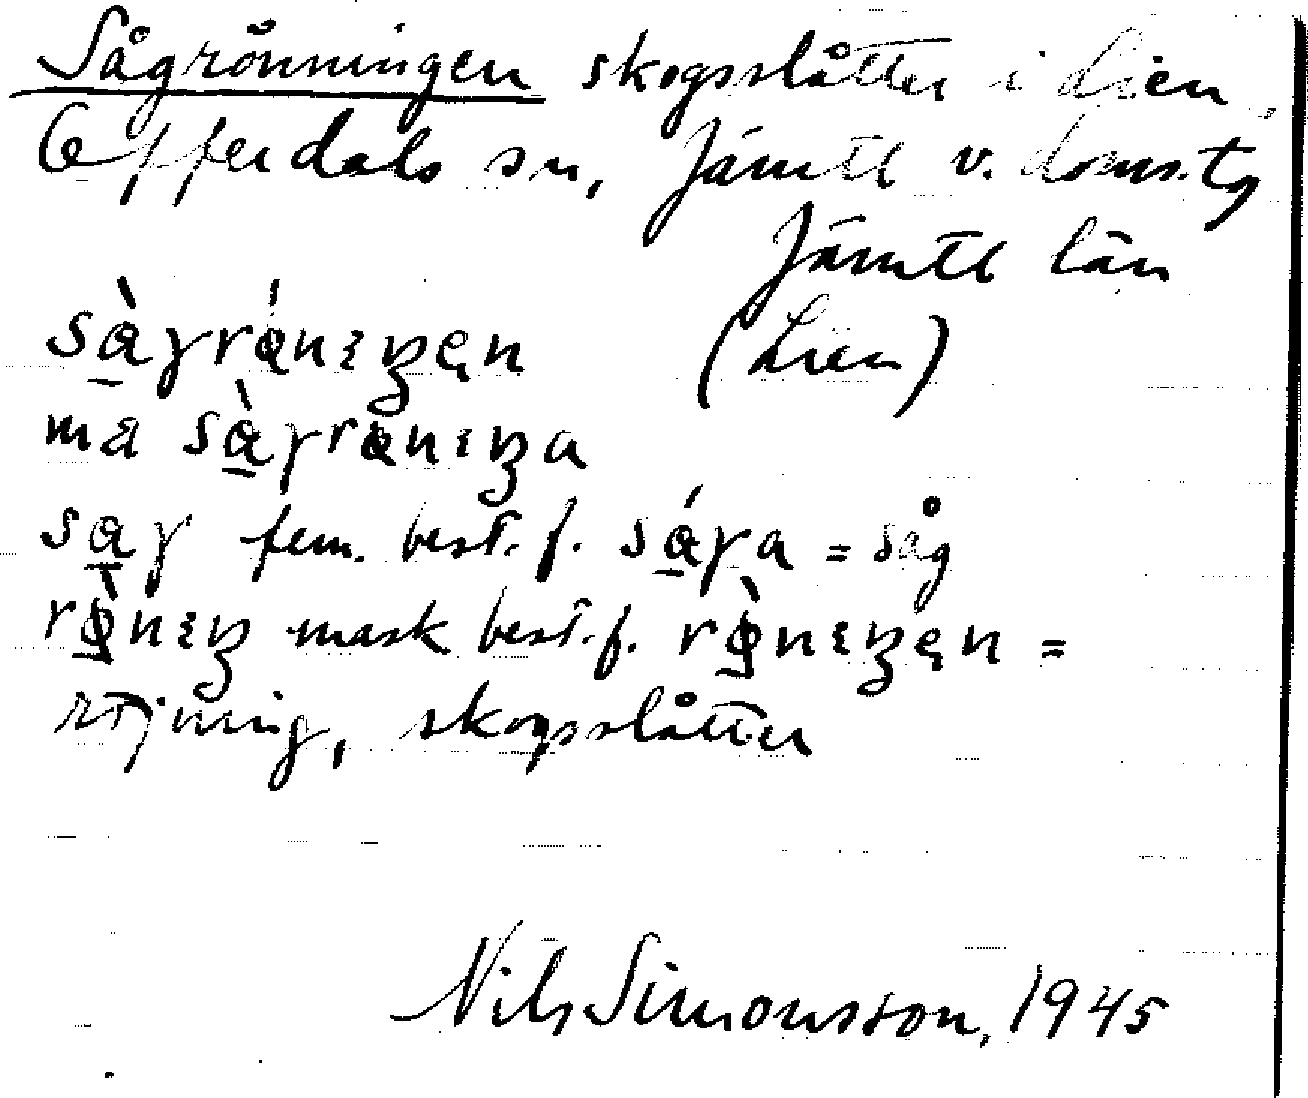 Sågrönningen skogsslåtter i Lien,
Offerdals sn, Jämtl v. doms.tg
Jämtl län
sàgrǻnıŋen (Lien)
ma sàgranıŋa
saɣ fem. best. f. sáɣa = såg
rø̀nıŋ mask best. f. rø̀nıŋen =
röjning, skogsslåtter
Nils Simonsson, 1945